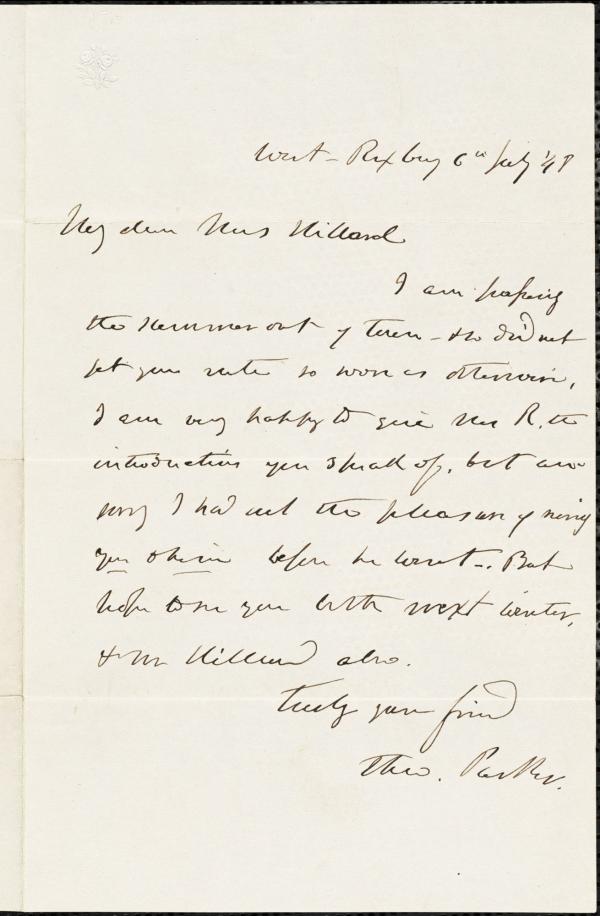 West-Roxbury 6th July '48
My dear Mrs Hilland
I am passing
the summer out of town - & so did not
get your note so soon as otherwise,
I am very happy to give Mr R. the
introductions you speak of, but am
sorry I had not the pleasure of seeing
you & him before he went -. But
hope to see you both next winter,
& Mr Hilland also.
Truly your friend
Theo. Parker.